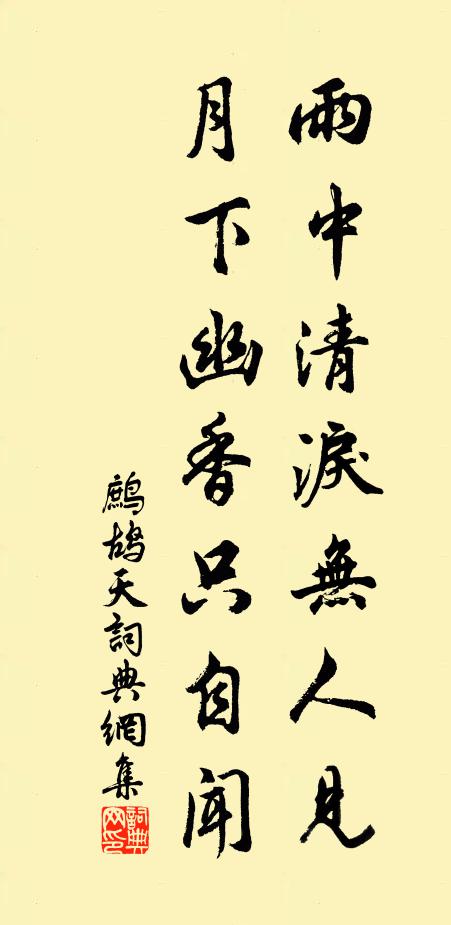 雨中清淚無人見
月下幽香只自聞
鷓鴣天詞典網集
詞典網印